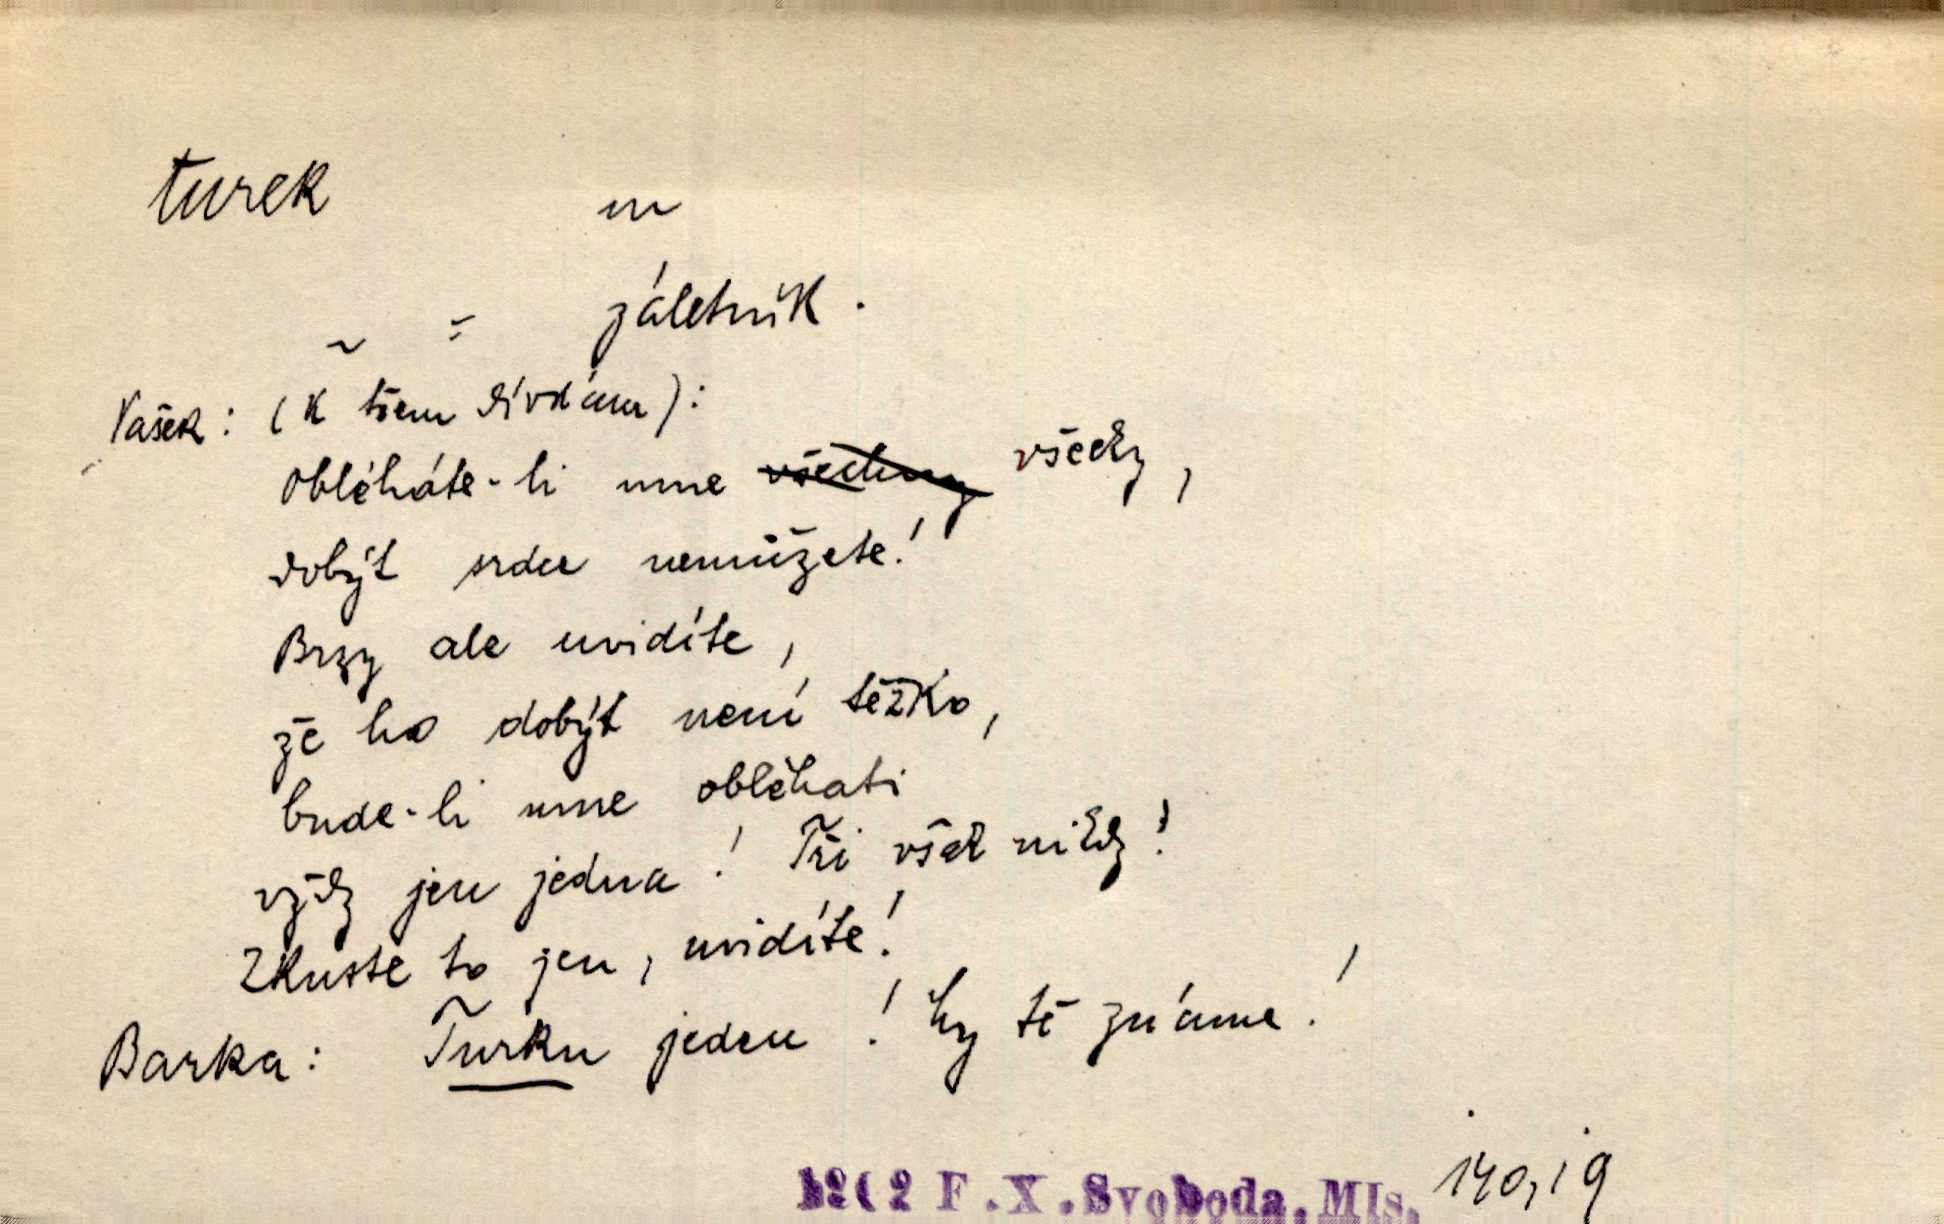 turek m
záletník.
Vašek: (K třem dívdám):
Obléháte-li mne všechny všecky,
dobýt srdce nemůžete!
Brzy ale uvidíte,
že ho dobýt není těžko,
bude-li mne obléhati
vždy jen jedna! Tři však nikdy!
Zkuste to jen, uvidíte!
Barka: Turku jeden! My tě známe!
F.X.Svoboda, Mls. 140, i 9